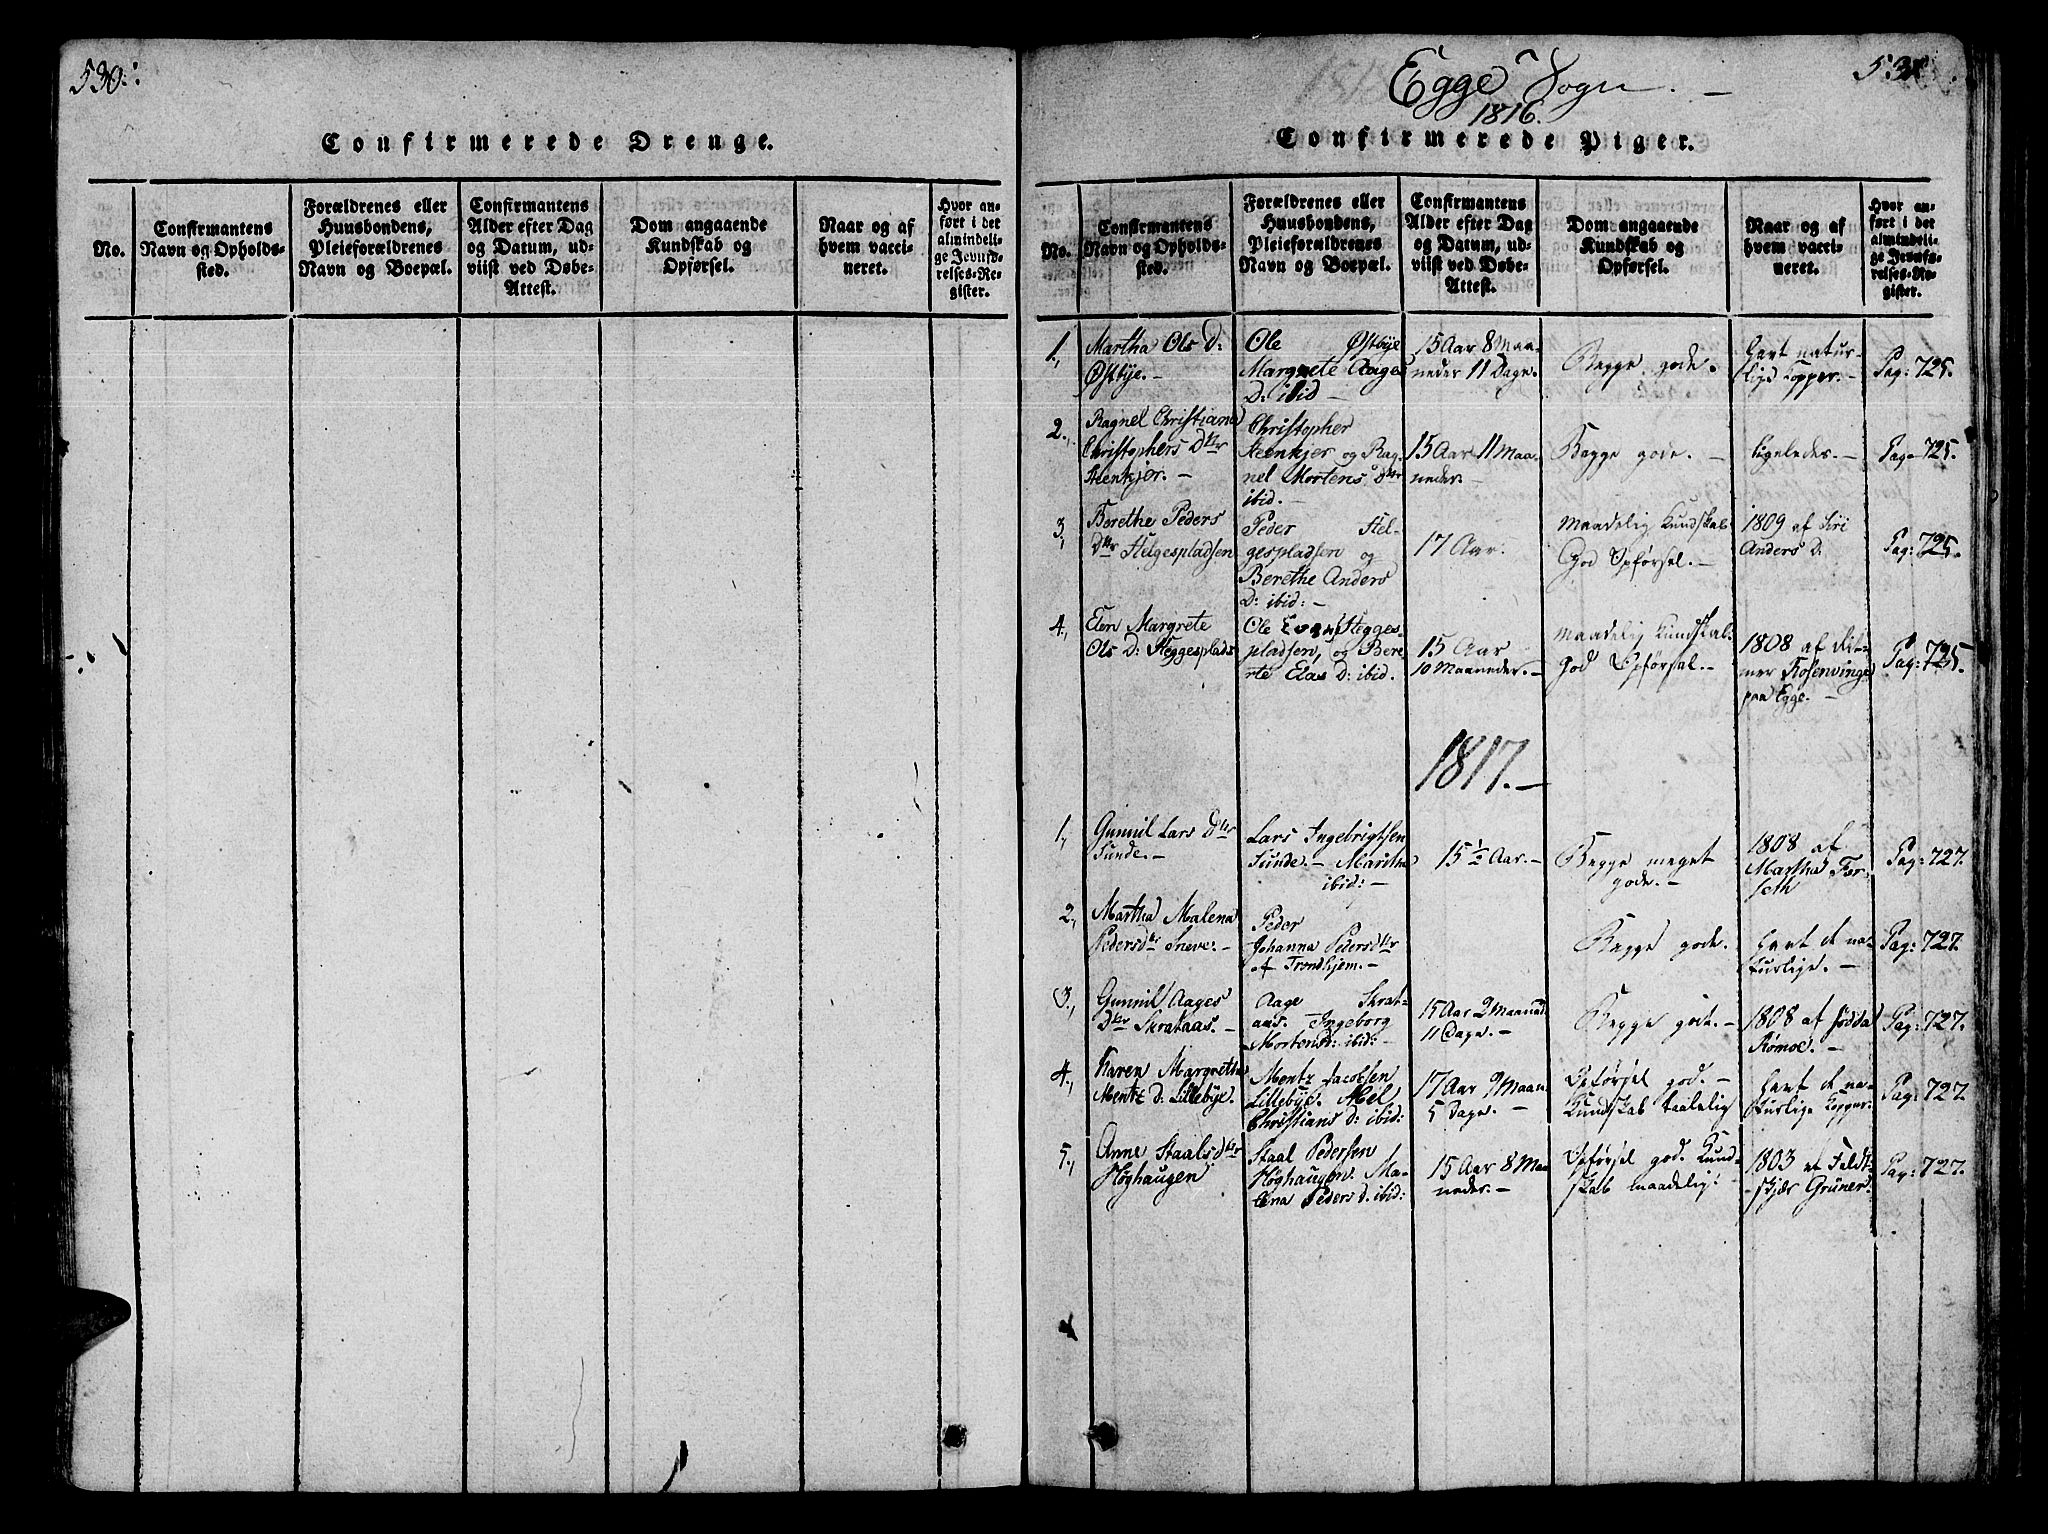 530.
Confirmerede Drenge.
No.
Confirmantens
Navn og Opholds-
sted.
Forældrenes eller
Huusbondens,
Pleieforældrenes
Navn og Boepæl.
Confirmantens
Alder efter Dag
og Datum, ud-
viist ved Døbe-
Attest.
Dom angaaende
Kundskab og
Opførsel.
Naar og af
hvem vacci-
neret.
Hvor an-
ført i det
almindeli-
ge Jevnfø-
relses-Re-
gister.
Egge Sogn.
1816.
531
Confirmerede Piger.
No.
Confirmantens
Navn og Opholds-
sted.
Forældrenes eller
Huusbondens,
Pleieforældrenes
Navn og Boepæl.
Confirmantens
Alder efter Dag
og Datum, ud-
viist ved Døbe-
Attest.
Dom angaaende
Kundskab og
Opførsel.
Naar og af
hvem vacci-
neret.
Hvor an-
ført i det
almindeli-
ge Jevnfø-
relses-Re-
gister.
1.,
Martha Ols D:
Østbye. -
Ole Østbye
Margrete Aages
D: ibid -
15 Aar 8 Maa-
neder 11 Dage.
Begge gode.
havt natur-
lige Kopper. -
Pag: 725.
2.,
Ragnel Christiana
Christophers Dtr
Steenkjer. -
Christopher
Steenkjer og Rag-
nel Mortens Dtr
ibid. -
15 Aar 11 Maa-
neder. -
Begge gode. -
ligeledes. -
Pag: 725.
3.,
Berethe Peders
Dtr Helgespladsen
Peder Hel-
gespladsen og
Berethe Anders
D: ibid: -
17 Aar.
Maadelig Kundskab
God Opførsel. -
1809 af Siri
Anders D.
Pag: 725.
4.,
Elen Margrete
Ols D: Heggesplads
Ole Hegges-
pladsen, og Bere-
rte Elas D: ibid.
15 Aar
10 Maaneder. -
Maadelig Kundskab.
god Opførsel. -
1808 af Dit-
mer Rosenvinge
paa Egge. -
Pag: 725.
1817. -
1.,
Gunnil Lars Dtr
Sunde. -
Lars Ingebrigtsen
Sunde. - Maritha
ibid: -
15 ½ Aar. -
Begge meget
gode. -
1808 af
Martha For-
seth
Pag: 727.
2.,
Martha Malena
Pedersdtr Sneve: -
Peder
Johanna Pedersdtr
af Trondhjem. -
Begge gode.
havt de na-
turlige. -
Pag: 727.
3.,
Gunnil Aages
Dtr Skrataas. -
Aage Skrat-
aas. Ingeborg
Mortensd: ibid: -
15 Aar 2 Maaned.
11 Dage. -
Begge gode. -
1808 af
Rømoe. -
Pag: 727.
4.,
Karen Margretha
Mentz D: Lillebye.
Mentz Jacobsen
Lillebye. Abel
Christians D: ibid:
17 Aar 9 Maan.
5 Dage. -
Opførsel god. -
Kundskab taalelig
havt de na-
turlige Kopper.
Pag: 727
5.,
Anne Staalsdtr
Høghaugen
Staal Pedersen
Høghaugen. Ma-
lena Peders D. ibid:
15 Aar 8 Maa
neder. -
Opførsel god. Kund-
skab maadelig:
1803 af Feldt-
skjær Grüner.
Pag: 727.